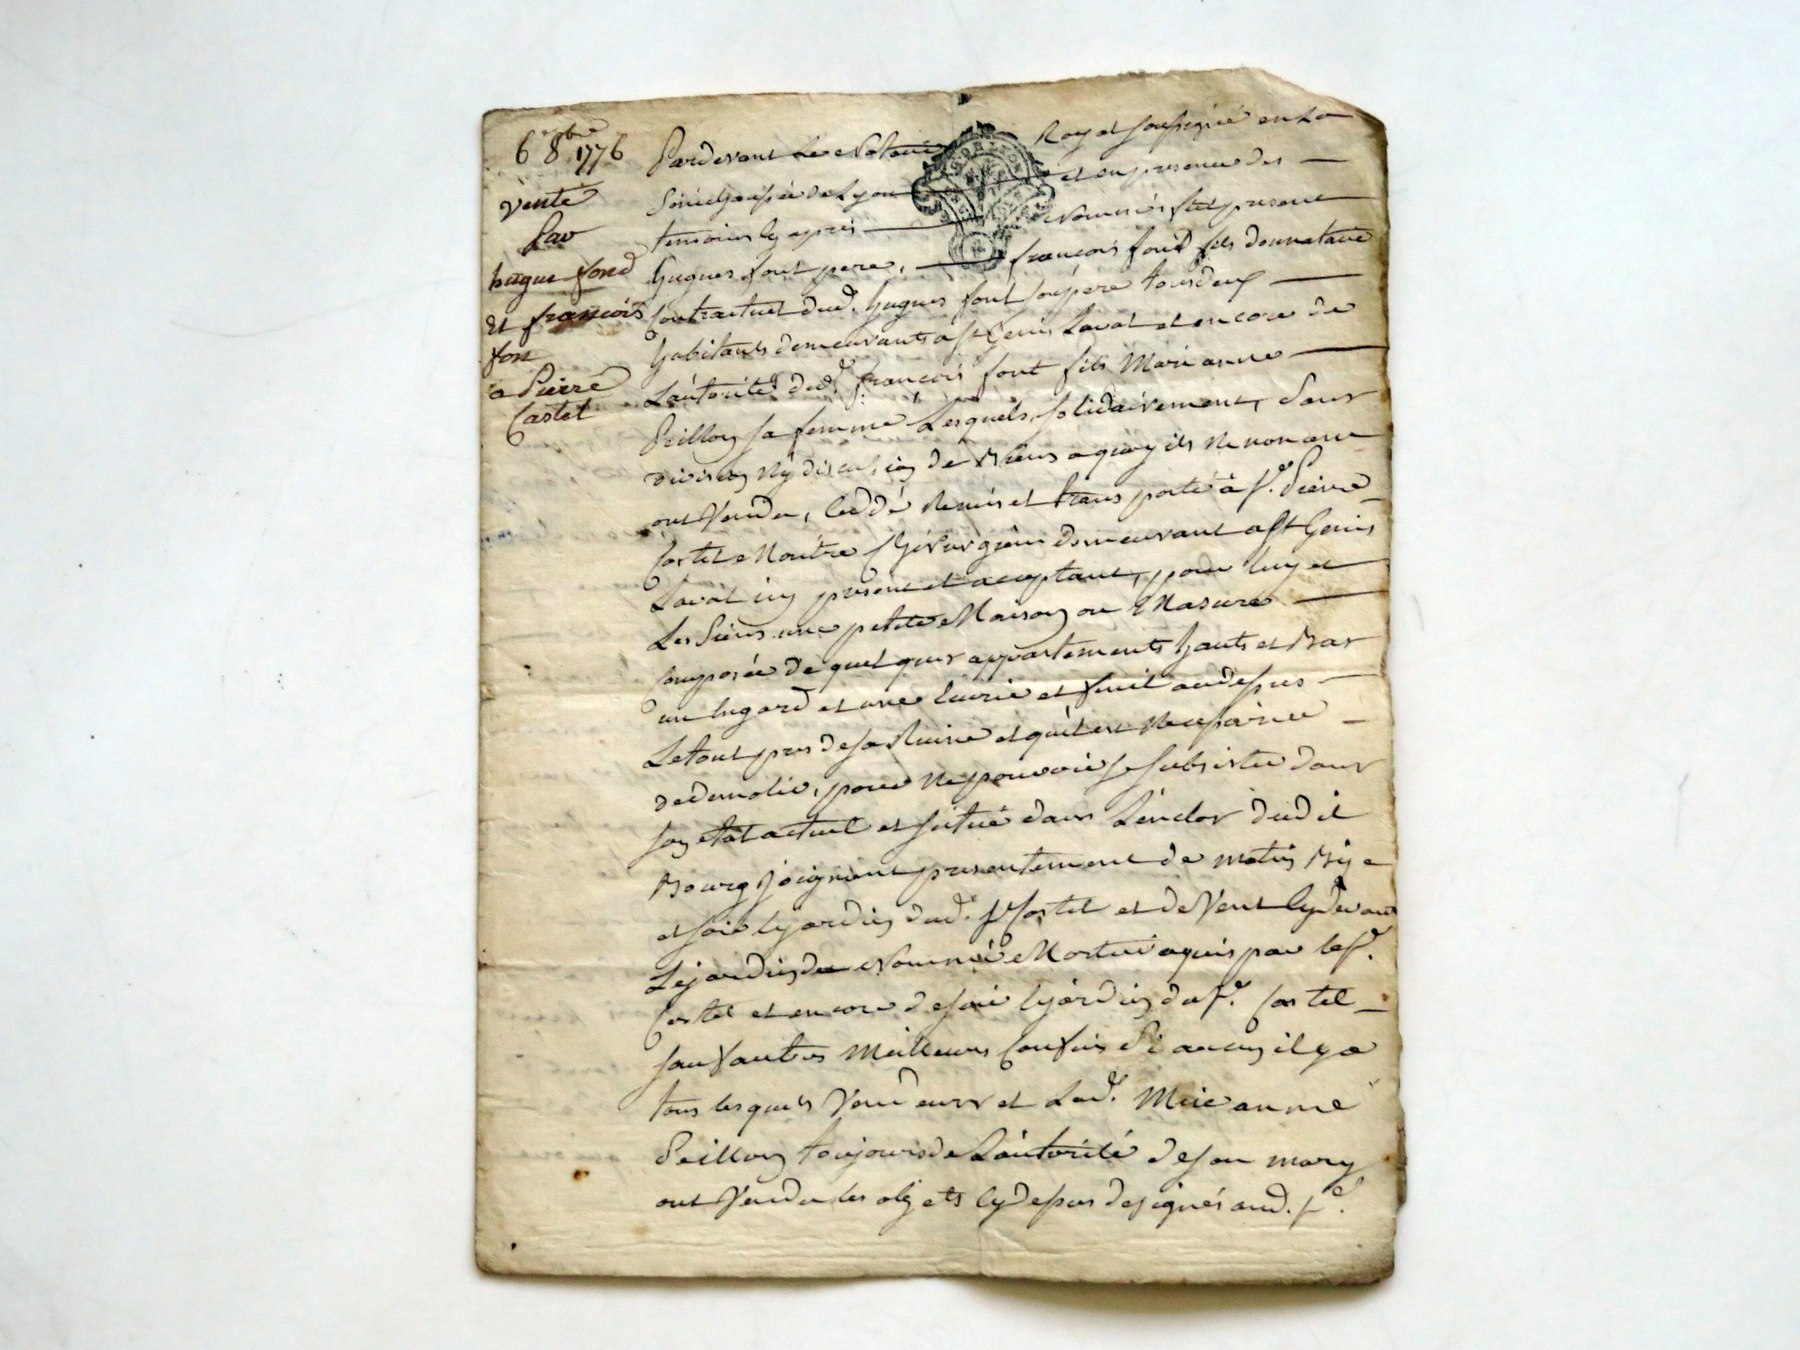 6 8bre 1776
vente
Par
hugue fond
et françois
fon
a Pierre
Castel
Pardevant Le Notaire Royal soussigné en La
Sénéchaussée de Lyon et en presence des
temoins cy aprés Nommés fut present
hugues font pere, françois fond fils donnataire
Contractuel dud. hugues font son pere tous deux
habitants demeurants a St Genis Laval et encore de
L'autorité dud. françois font fils Marianne
Peillon sa femme Lesquels solidairement, sans
division ny discution de biens a quoy ils renoncent
ont Vendu, Ceddé Remis et transporté à sr. Pierre
Castel Maitre Chirurgien demeurant a St Genis
Laval icy present et acceptant, pour luy et
Les Siens une petite Maison ou Masure
Composée de quelques appartements hauts et bas
un hugard et une Ecurie et fenil au dessus
Le tout pres de sa Ruine et qu'il est Necessaire
de demolir, pour Ne pouvoir se subsister dans
son état actuel et situé dans L'enclos dudit
Bourg Joignant presentement de matin bize
et soir le jardin dud. sr Castel et de Vent cy devant
Le jardin du Nommé aquis par le sr.
Castel et encore de soir le jardin du sr. Castel
sauf autres Meilleurs Confins Si aucun il y a
tous lesquels Vendeurs et Lad. Marie anne
Peillon toujours de L'autorité de son mary
ont Vendu les objets cy dessus designés aud. sr.